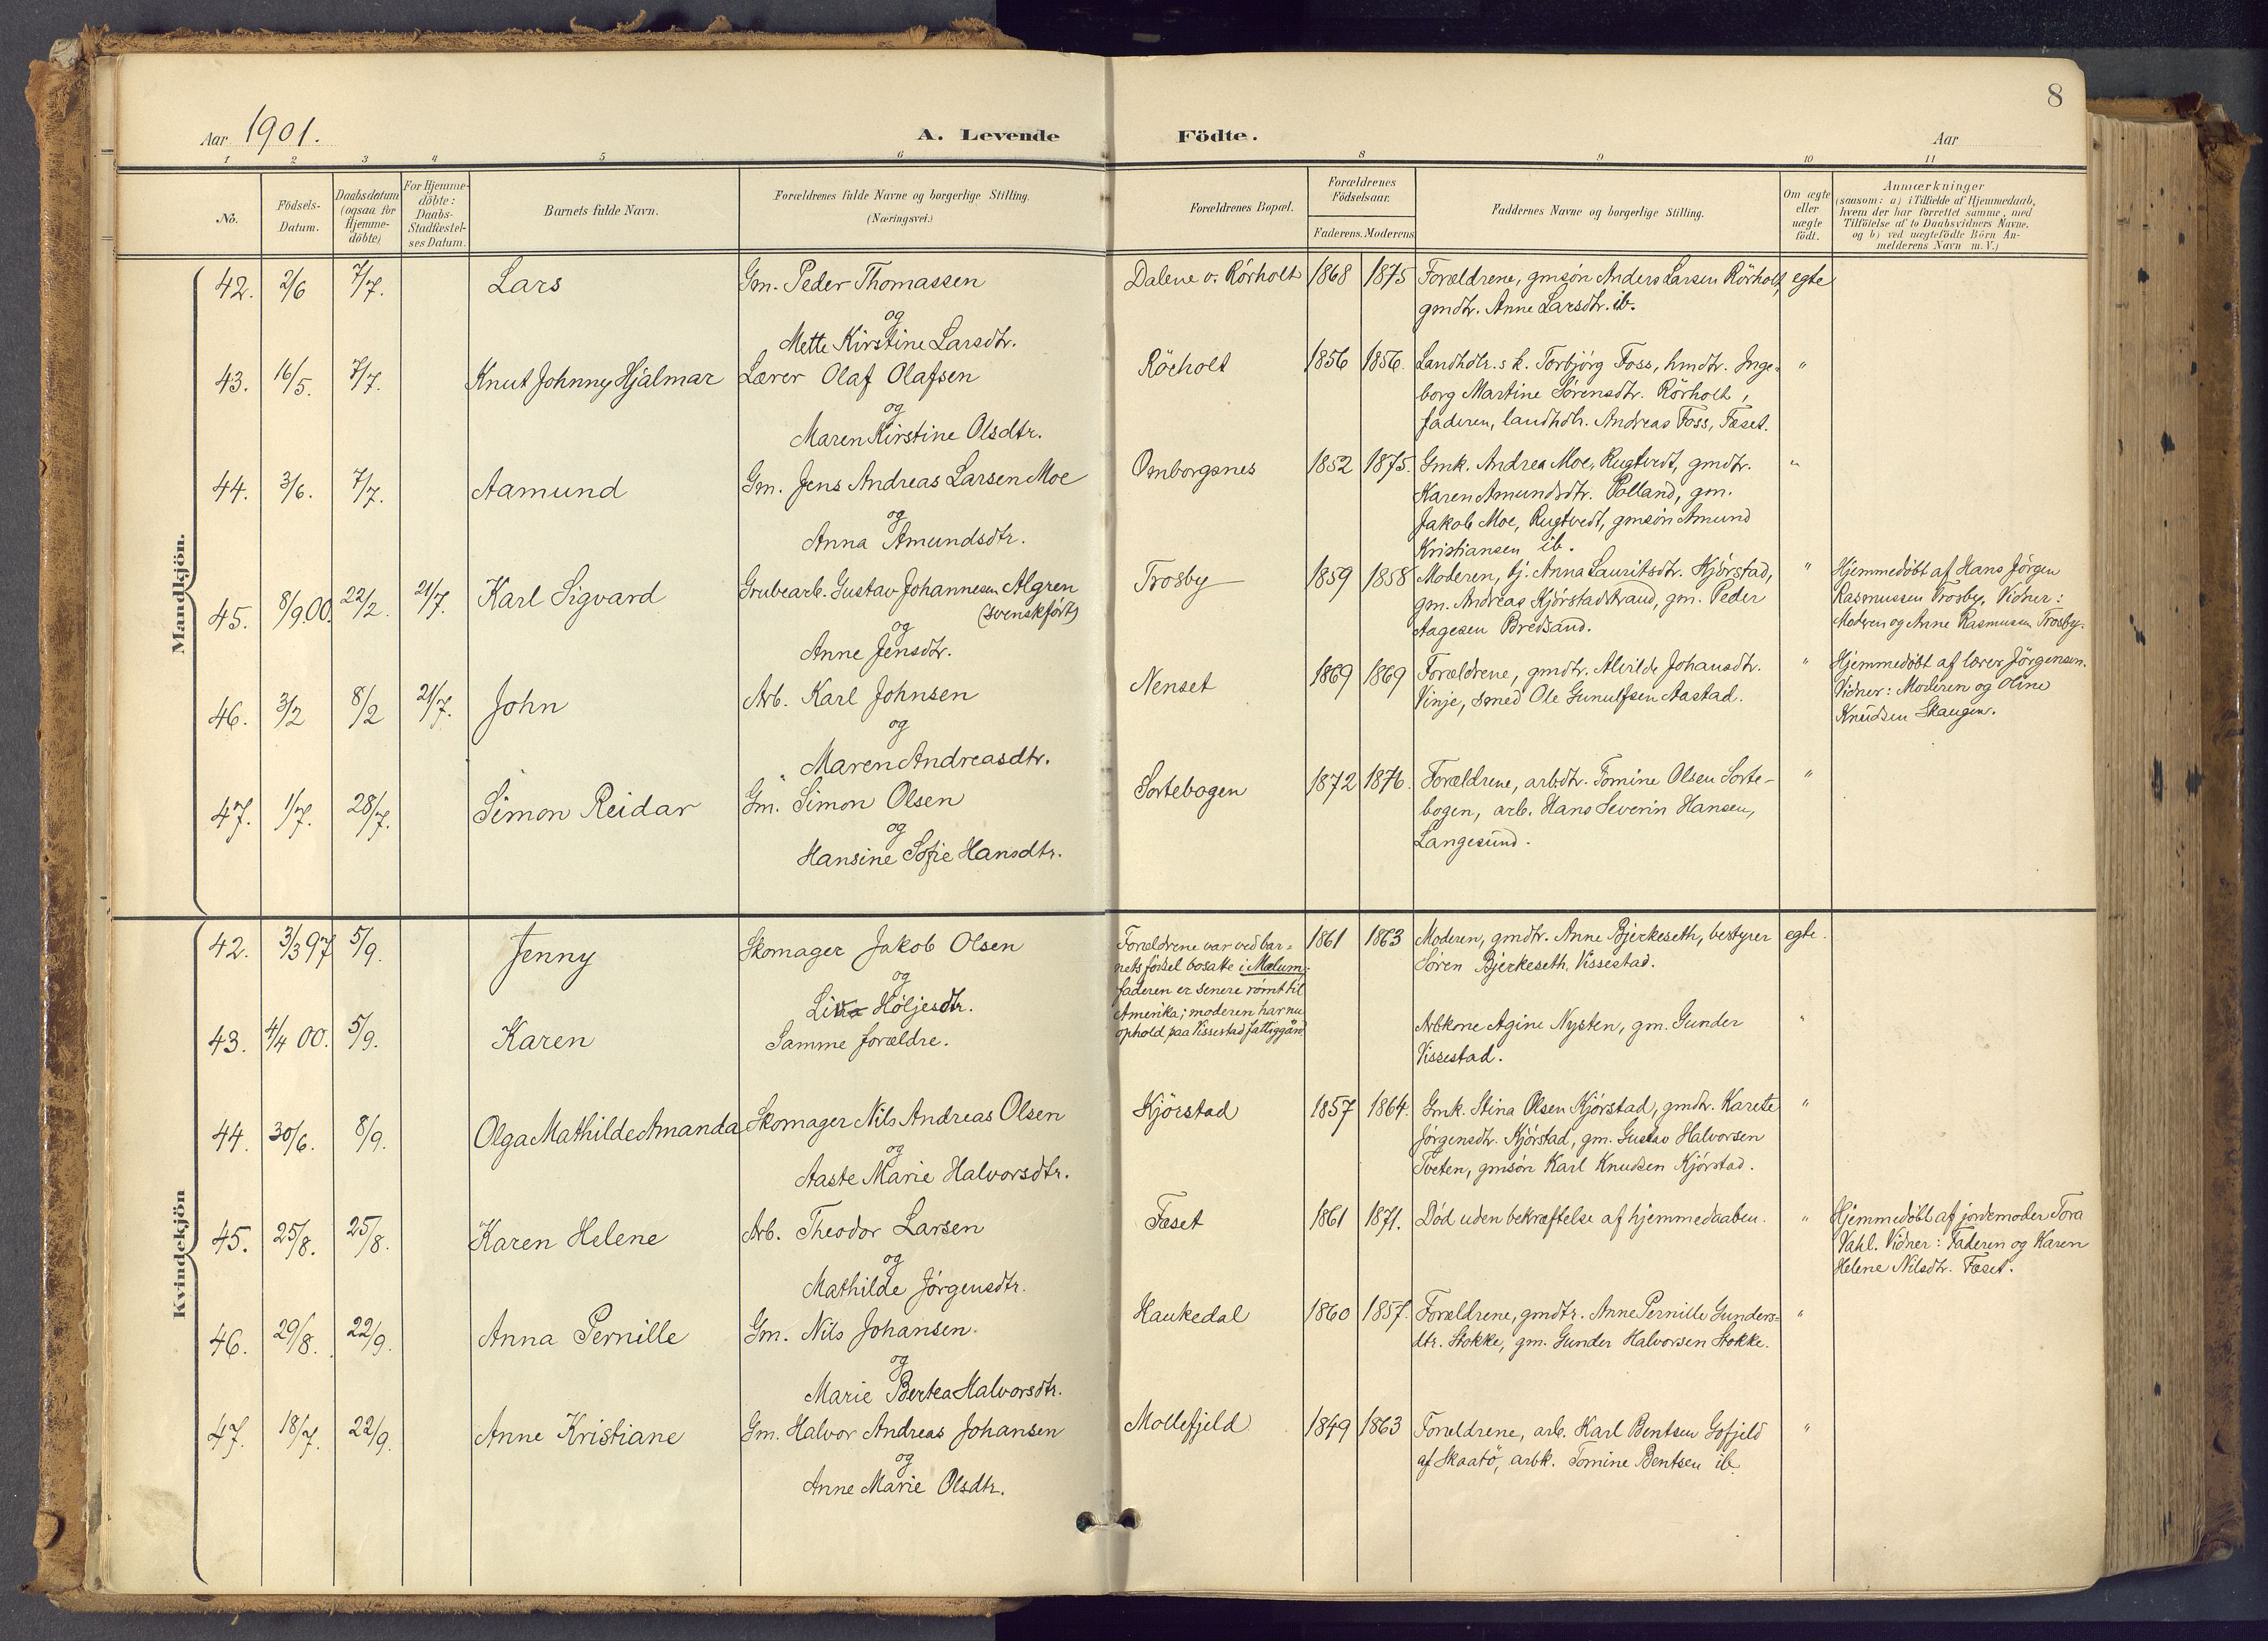 8
Aar 1901.
A. Levende Födte.
Aar
1 2 3 4 5 6 8 9 10 11
No.
Födsels-Datum.
Daabsdatum (ogsaa for Hjemme-döbte)
For Hjemme-döbte: Daabs-Stadfæstel-ses Datum.
Barnets fulde Navn.
Forældrenes fulde Navne og borgerlige Stilling.
(Næringsvei.)
Forældrenes Bopæl.
Forældrenes Födselsaar.
Faderens. Moderens.
Faddernes Navne og borgerlige Stilling.
Om ægte eller uægte födt.
Anmærkninger
(saasom: a) i Tilfælde af Hjemmedaab,
hvem der har forrettet samme, med
Tilföielse af to Daabsvidners Navne.
og b) ved uægtefödte Börn An-
melderens Navn m. V.)
Mandkjön.
42. 2/6 7/7. Lars Gm. Peder Thomassen
og
Mette Kirstine Larsdtr.
Dalene v. Rörholt 1868 1875 Forældrene, gmsön Anders Larsen Rörholt, egte
gmdtr. Anne Larsdtr. ib.
43. 16/5. 7/7. Knut Johnny Hjalmar Lærer Olaf Olafsen
og
Maren Kirstine Olsdtr.
Rörholt 1856 1856. Landhdlr.sk. Torbjörg Foss, hmdtr. Inge- "
borg Martine Sörensdtr. Rörholt,
faderen, landhdlr. Andreas Foss, Fæset.
44. 3/6. 7/7. Aamund Gm. Jens Andreas Larsen Moe
og
Anna Amundsdtr.
Omborgsnes 1852 1875. Gmk. Andrea Moe, Rugtvedt, gmdtr. "
Karen Amundsdtr. Polland, gm.
Jakob Moe, Rugtvedt, gmsön Amund
Kristiansen ib.
45. 8/9 00. 22/2. 21/7. Karl Sigvard Grubearb. Gustav Johannesen Algren
(svenskfödt)
og
Anne Jensdtr.
Trosby 1859 1858 Moderen, tj. Anna Lauritsdtr. Kjörstad, "
gm. Andreas Kjörstadstrand, gm. Peder
Aagesen Bredsand.
Hjemmedöbt af Hans Jörgen
Rasmussen Trosby. Vidner:
Moderen og Anne Rasmusen Trosby.
46. 3/2 8/2 21/7. John Arb. Karl Johnsen
og
Maren Andreasdtr.
Nenset 1869 1869 Forældrene, gmdtr. Alvilde Johansdtr. "
Vinje, smed Ole Gunulfsen Aastad.
Hjemmedöbt af lærer Jörgensen.
Vidner: Moderen og Oline
Knudsen Skaugen.
47. 1/7. 28/7. Simon Reidar Gm. Simon Olsen
og
Hansine Sofie Hansdtr.
Sortebogen 1872 1876. Forældrene, arbdtr. Tomine Olsen Sorte- "
bogen, arb. Hans Severin Hansen,
Langesund.
Kvindekjön
42. 3/3 97 5/9. Jenny Skomager Jakob Olsen
og
Höljesdtr.
Forældrene var ved bar-
nets födsel bosatte i Mælum;
faderen er senere römt til
Amerika; moderen har nu
ophold paa Vissestad fattiggård
1861 1863 Moderen, gmdtr. Anne Bjerkeseth, bestyrer egte.
Sören Bjerkeseth, Vissestad.
43. 4/4 00. 5/9. Karen Samme forældre.
Arbkone Agine Nysten, gm. Gunder "
Vissestad.
44. 30/6. 8/9. Olga Mathilde Amanda Skomager Nils Andreas Olsen
og
Aaste Marie Halvorsdtr.
Kjörstad 1857 1864. Gmk. Stina Olsen Kjörstad, gmdtr. Karette "
Jörgensdtr. Kjörstad, gm. Gustav Halvorsen
Tveten, gmsön Karl Knudsen Kjörstad.
45. 25/8. 25/8. Karen Helene Arb. Theodor Larsen
og
Mathilde Jörgensdtr.
Fæset 1861 1871. Död uden bekræftelse af hjemmedaaben. "
Hjemmedöbt af jordemoder Tora
Vahl. Vidner: Faderen og Karen
Helene Nilsdtr. Fæset.
46. 29/8. 22/9. Anna Pernille Gm. Nils Johansen.
og
Marie Bertea Halvorsdtr.
Haukedal 1860 1857. Forældrene, gmdtr. Anne Pernille Gunders- "
dtr. Stokke, gm. Gunder Halvorsen Stokke.
47. 18/7. 22/9. Anne Kristiane Gm. Halvor Andreas Johansen
og
Anne Marie Olsdtr.
Mollefjeld 1849 1863 Forældrene, arb. Karl Bentsen Gofjeld "
af Skaatö, arbk. Tomine Bentsen ib.